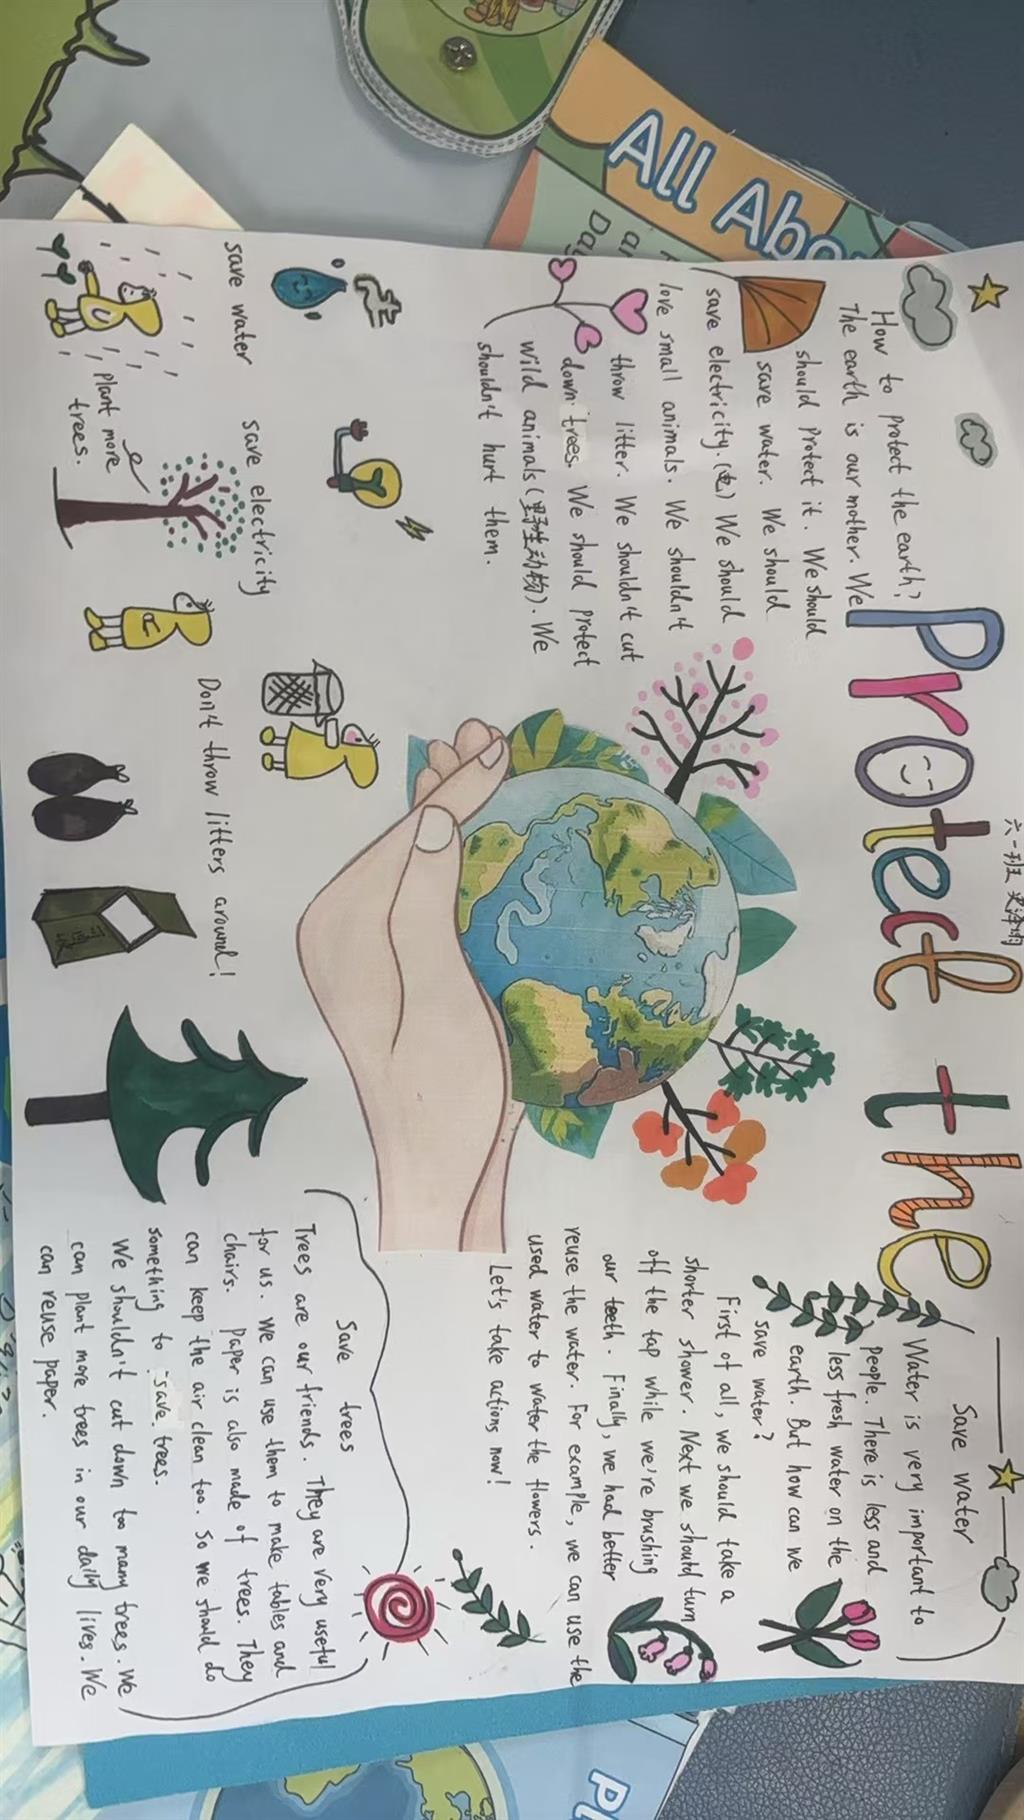 All Abo
Protect the
六一班
How to protect the earth?
The earth is our mother. We
should protect it. We should
save water. We should
save electricity.(电) We should
love small animals. We shouldn't
throw litter. We shouldn't cut
down trees. We should protect
wild animals(野生动物). We
shouldn't hurt them.
save water
save electricity
plant more
trees.
Don't throw litters around!
Save water
Water is very important to
people. There is less and
less fresh water on the
earth. But how can we
save water?
First of all, we should take a
shorter shower. Next we should turn
off the tap while we're brushing
our teeth. Finally, we had better
reuse the water. For example, we can use the
used water to water the flowers.
Let's take actions now!
Save trees
Trees are our friends. They are very useful
for us. We can use them to make tables and
chairs. Paper is also made of trees. They
can keep the air clean too. So we should do
something to save trees.
We shouldn't cut down too many trees. We
can plant more trees in our daily lives. We
can reuse paper.
Pl